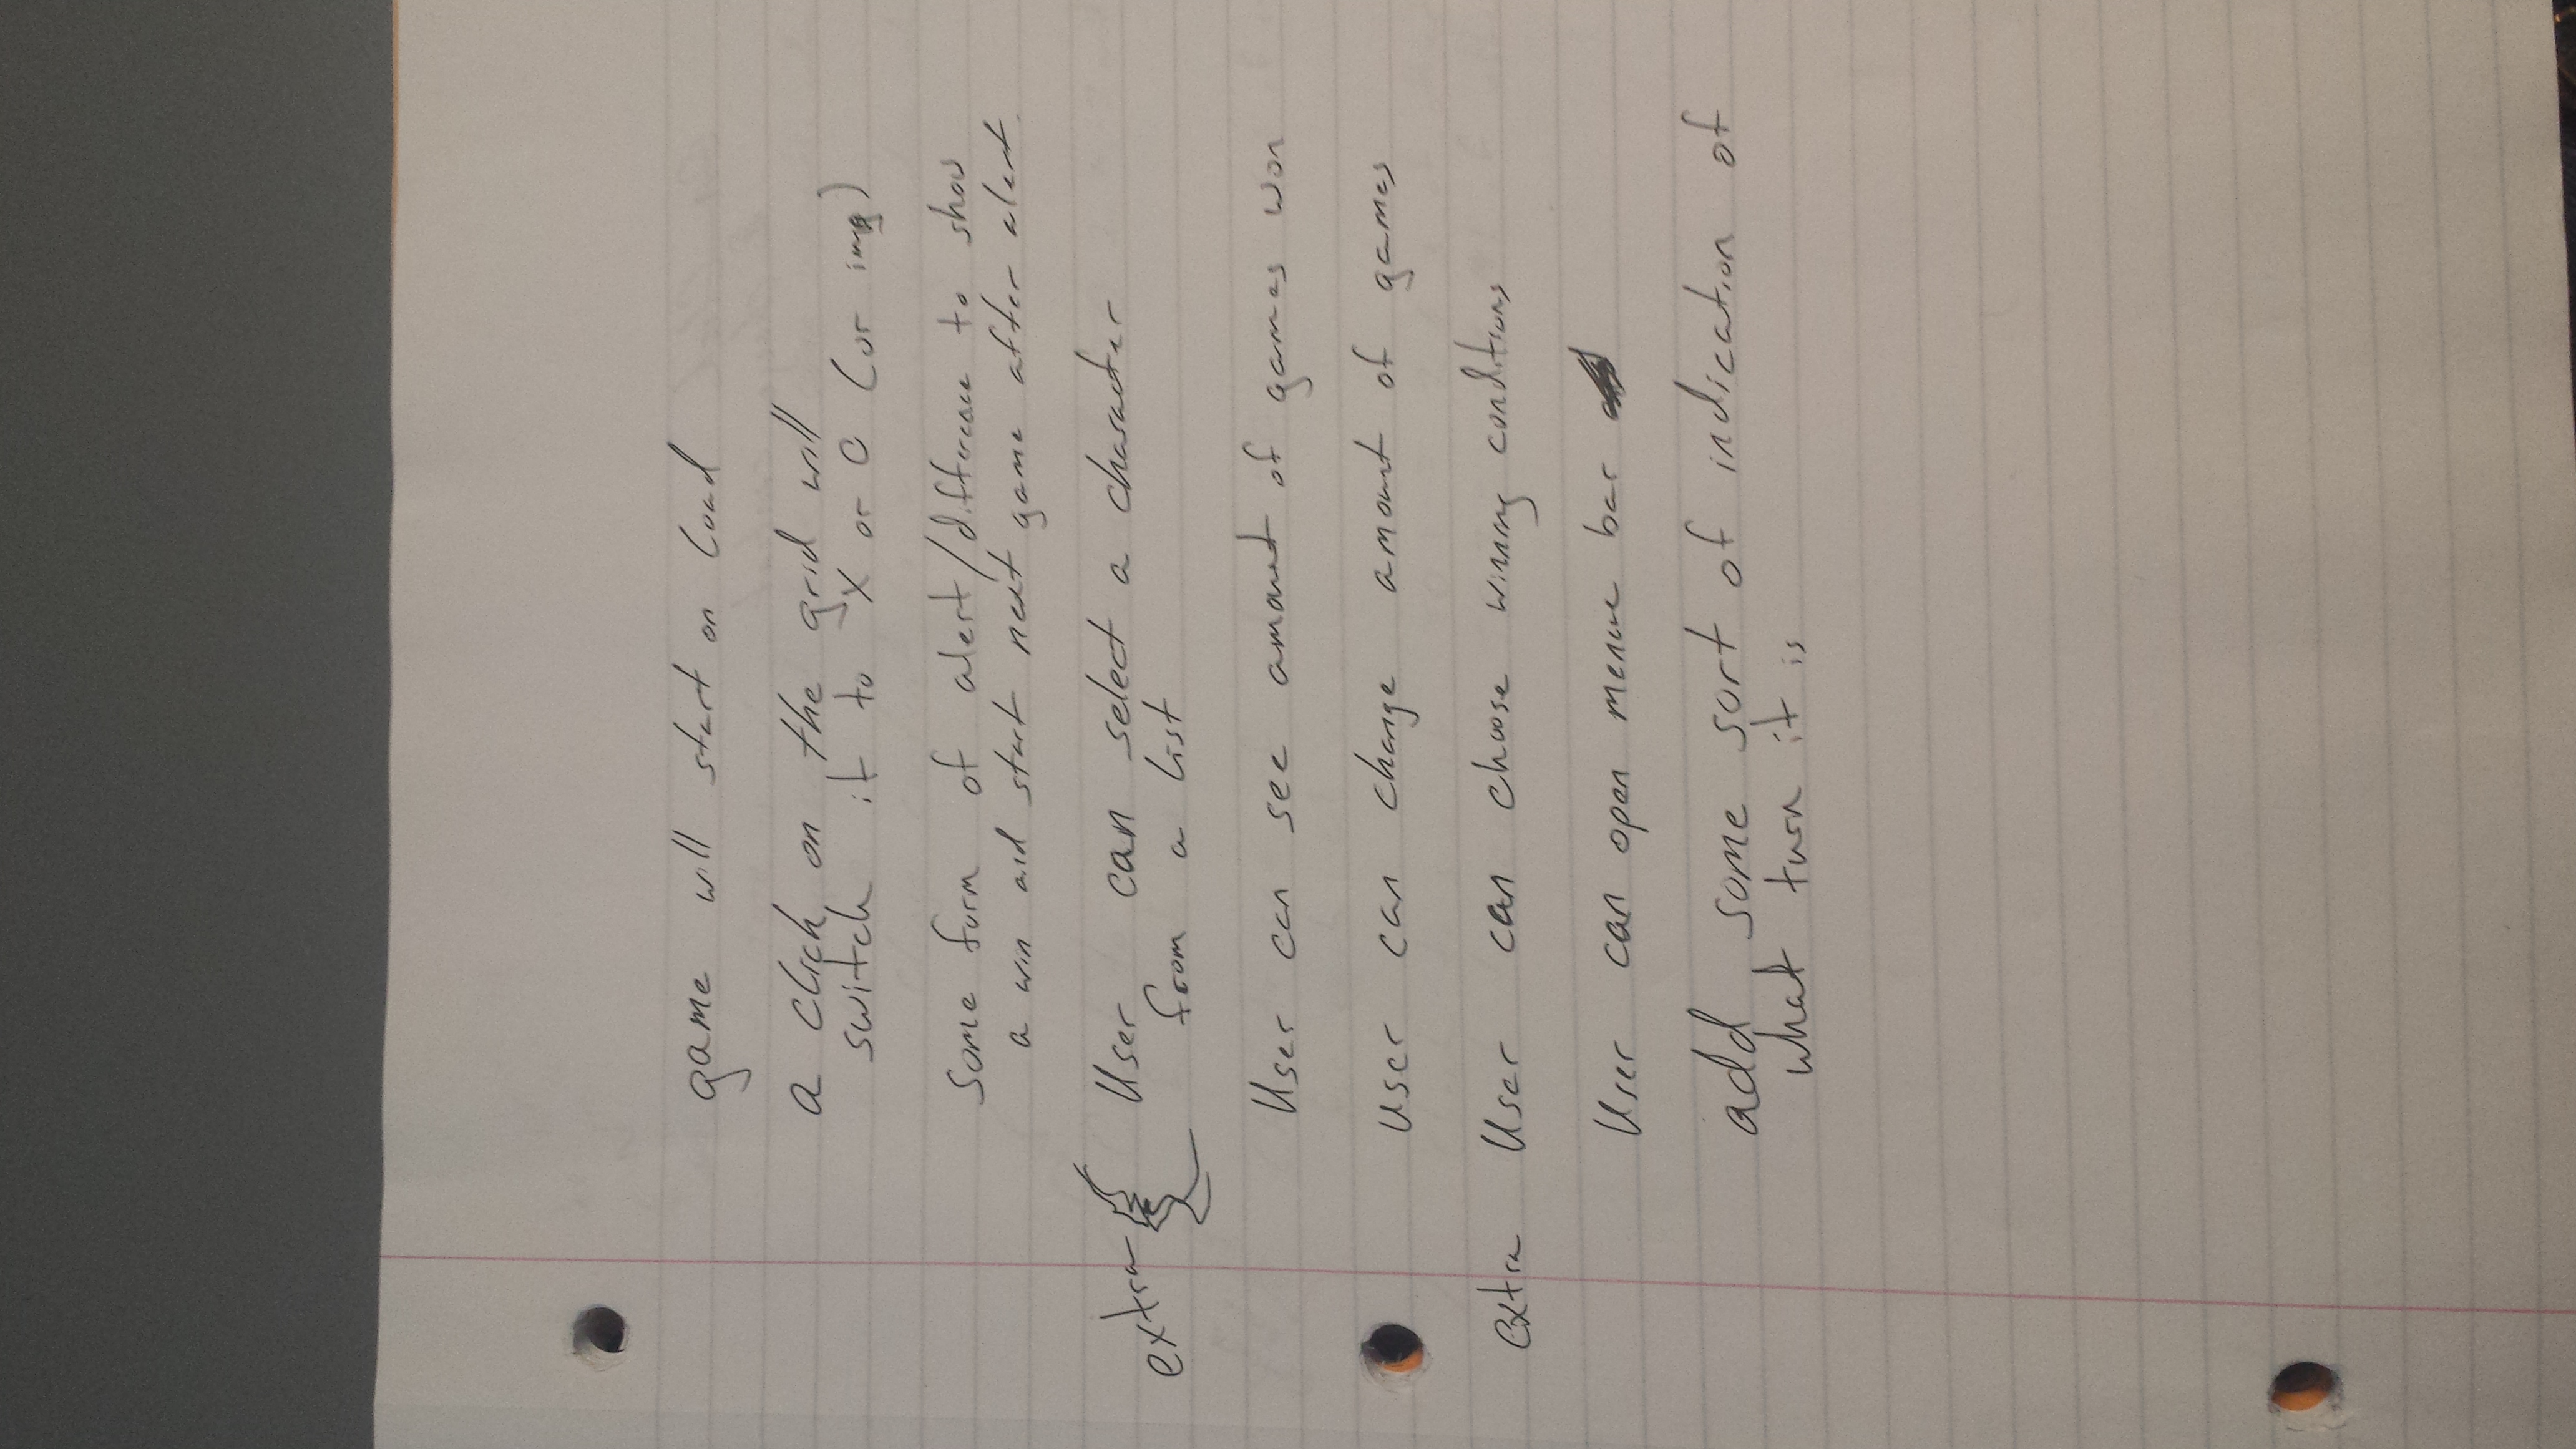 game will start on load
a click on the grid will
switch it to X or O (or img)
some form of alert/difference to show
a win and start next game after alert
extra { User can select a character
from a list
User can see amount of games won
User can change amount of games
extra User can choose winning conditions
User can open menue bar
add some sort of indication of
what turn it is